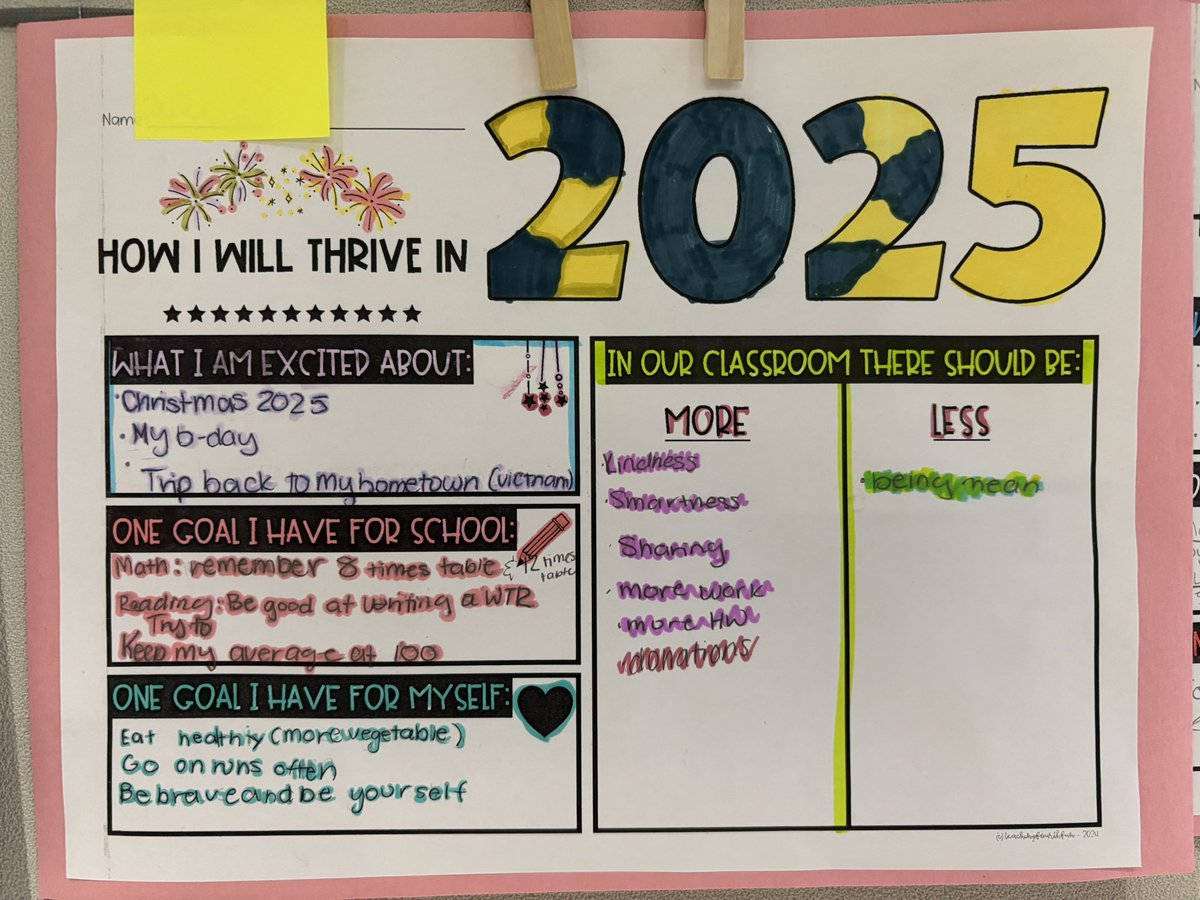 Name
2025
HOW I WILL THRIVE IN
WHAT I AM EXCITED ABOUT:
·Christmas 2025
·My b-day
·Trip back to my hometown (vietnam)
ONE GOAL I HAVE FOR SCHOOL:
Math: remember 8 times table & 12 times table
Reading: Be good at writing a WTR
Try to
Keep my average at 100
ONE GOAL I HAVE FOR MYSELF:
Eat healthiy (more vegetable)
Go on runs often
Be brave and be yourself
IN OUR CLASSROOM THERE SHOULD BE:
MORE
·kindness
·Smartness
Sharing
more work
·more HW
LESS
·being mean
2024